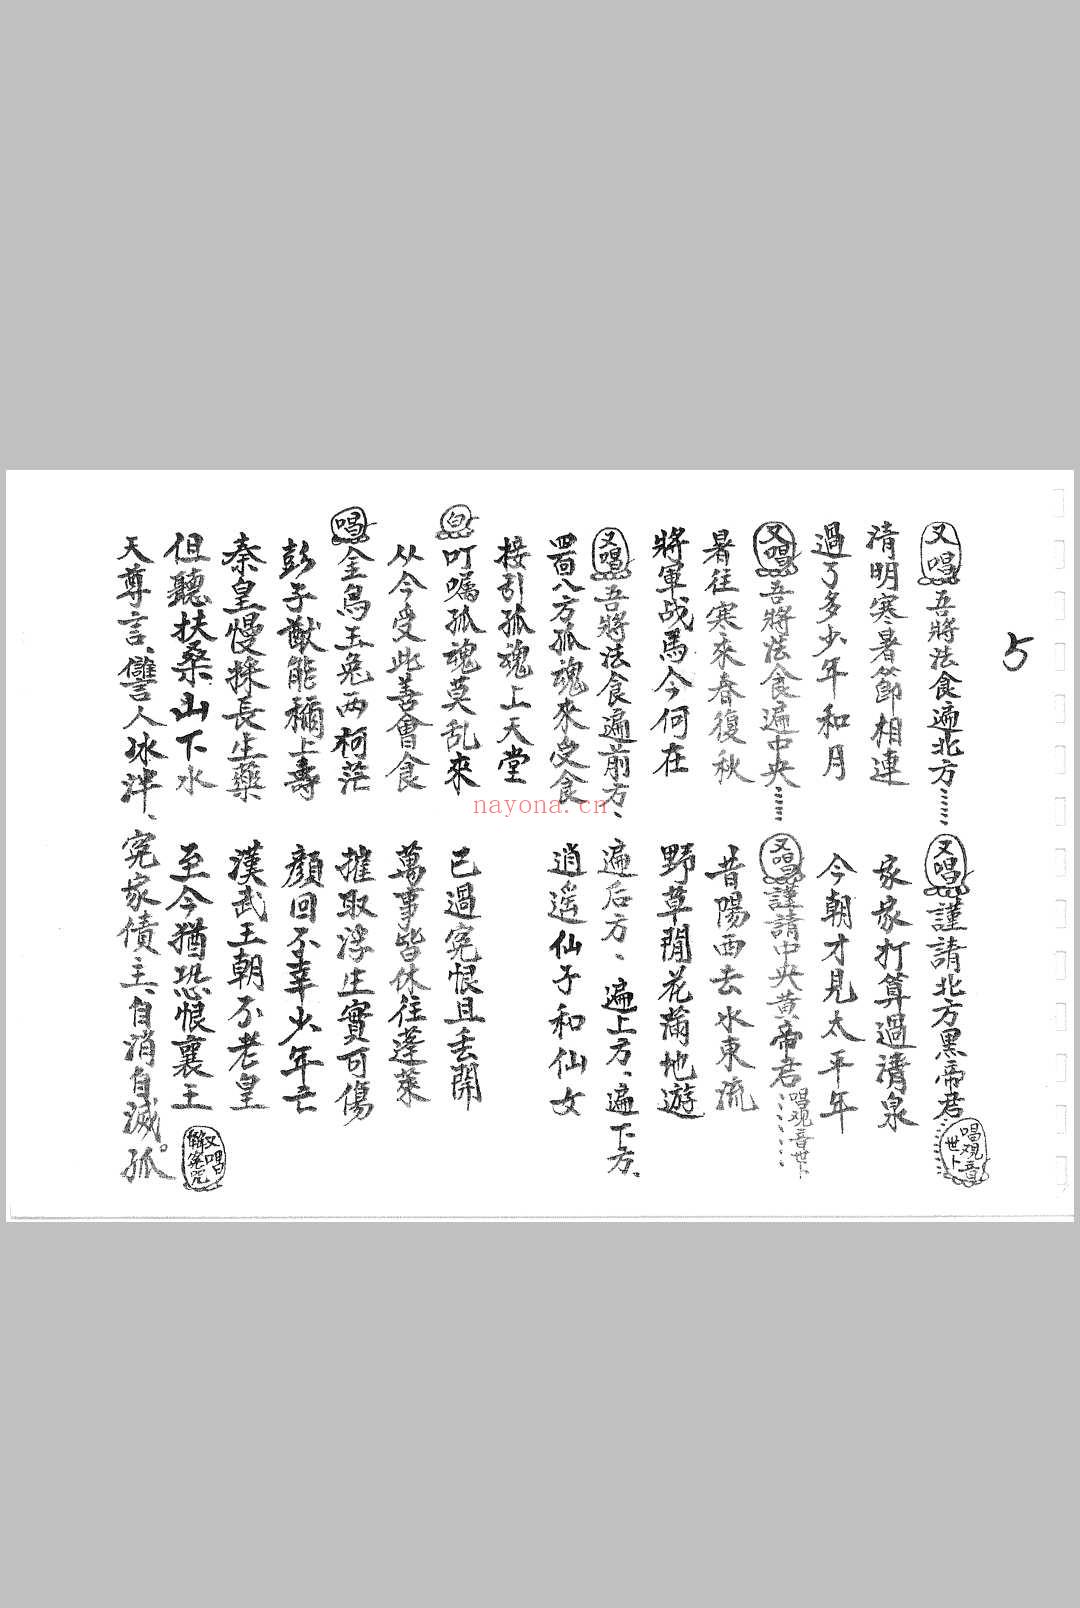 5
又唱 吾將法食遍北方…… 又唱 謹請北方黑帝君…… 唱观音世卜
清明寒暑節相連 家家打算過清泉
過了多少年和月 今朝才見太平年
又唱 吾將法食遍中央…… 又唱 謹請中央黄帝君 唱观音世卜……
暑往寒來春復秋 昔陽西去水東流
將軍战馬今何在 野草閒花滿地遊
又唱 吾將法食遍前方、遍后方、遍上方、遍下方、
四面八方孤魂來受食 逍遥仙子和仙女
接引孤魂上天堂
白 叮嘱孤魂莫乱來 已過寃恨且丢開
从今受此善會食 萬事皆休往蓬萊
唱 金烏玉兔两柯茫 摧取浮生實可傷
彭子猷能稱上壽 顔回不幸少年亡
秦皇慢採長生藥 漢武王朝不老皇
但聽扶桑山下水 至今猶恐恨襄王 又唱解冤咒
天尊言、讐人冰泮、寃家債主、自消自滅。孤
nayona.cn